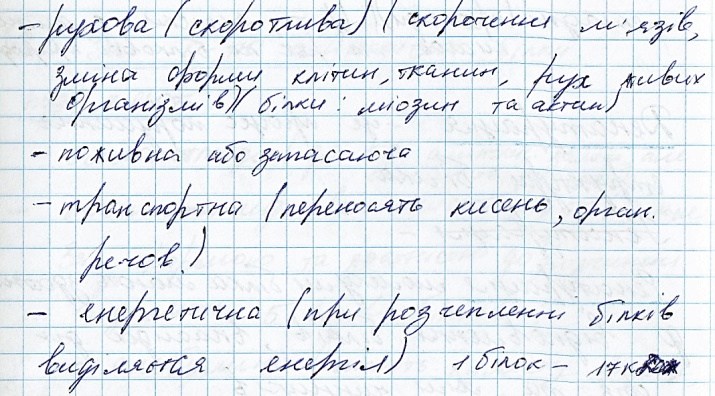 - рухова (скоротлива) (скорочення м'язів,
зміна форми клітин, тканин, рух живих
організмів) (білки: міозин та актин)
- поживна або запасаюча
- транспортна (переносять кисень, орган.
речов.)
- енергетична (при розчепленні білків
виділяється енергія) 1 білок - 17к